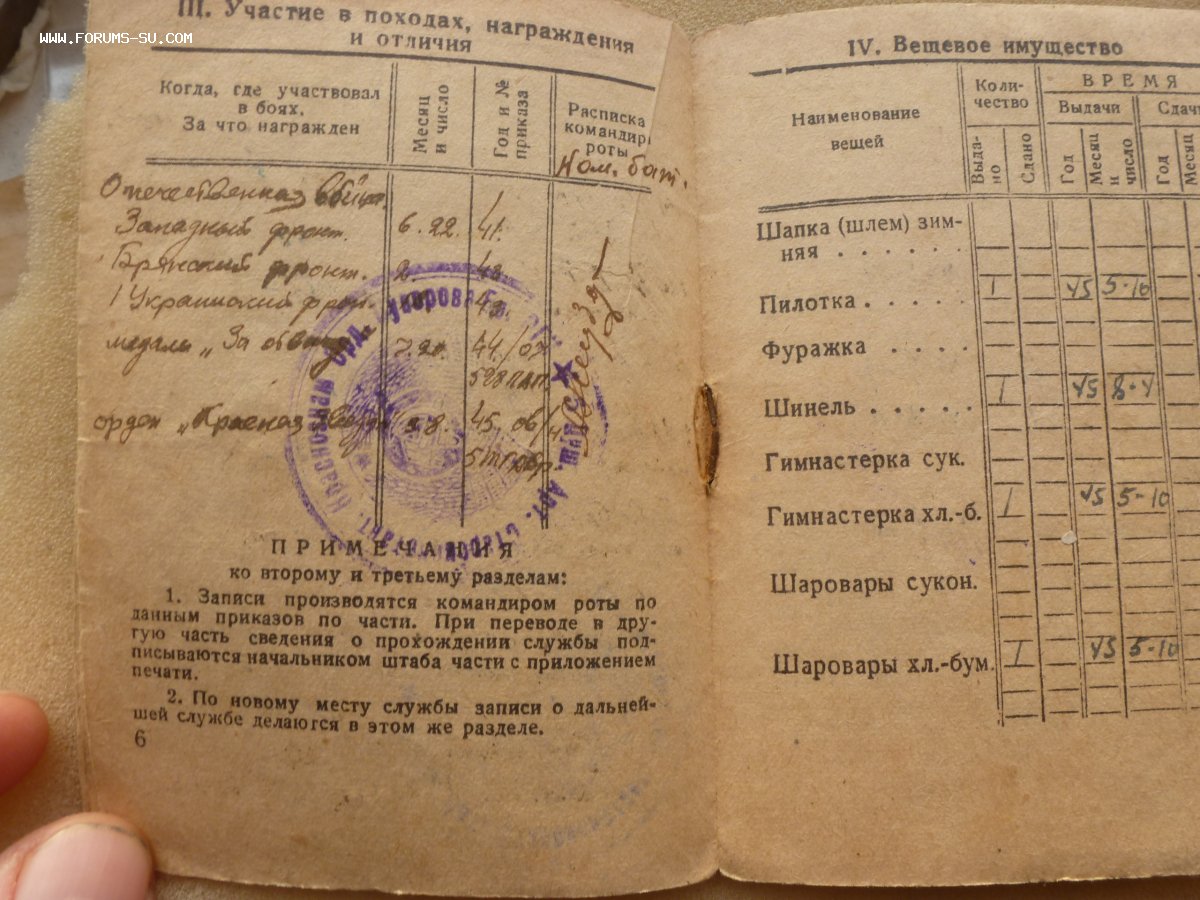 WWW.FORUMS-SU.COM
III. Участие в походах, награждения
и отличия
Когда, где участвовал
в боях.
За что награжден
Месяц
и число
Год и №
приказа
Расписка
командир
роты
Ком. бат.
Отечественная
Западный фронт. 6. 22. 41.
Брянский фронт. 2. 42.
1 Украинский фрон. 43.
медаль „За отвагу" 7. 20. 44./07
528 ПАП.
орден „Красная Звезда 45. 06/н
ПРИМЕЧАНИЯ
ко второму и третьему разделам:
1. Записи производятся командиром роты по
данным приказов по части. При переводе в дру-
гую часть сведения о прохождении службы под-
писываются начальником штаба части с приложением
печати.
2. По новому месту службы записи о дальней-
шей службе делаются в этом же разделе.
6
IV. Вещевое имущество
Наименование
вещей
Коли-
чество
ВРЕМЯ
Выдачи
Сдачи
Выда-
но
Сдано
Год
Месяц
и
число
Год
Месяц
Шапка (шлем) зим-
няя . . . . .
Пилотка . . . . . 1 45 5-10
Фуражка . . . .
Шинель . . . . . 1 45 8-4
Гимнастерка сук.
Гимнастерка хл.-б. 1 45 5-10
Шаровары сукон.
Шаровары хл.-бум. 1 45 5-10